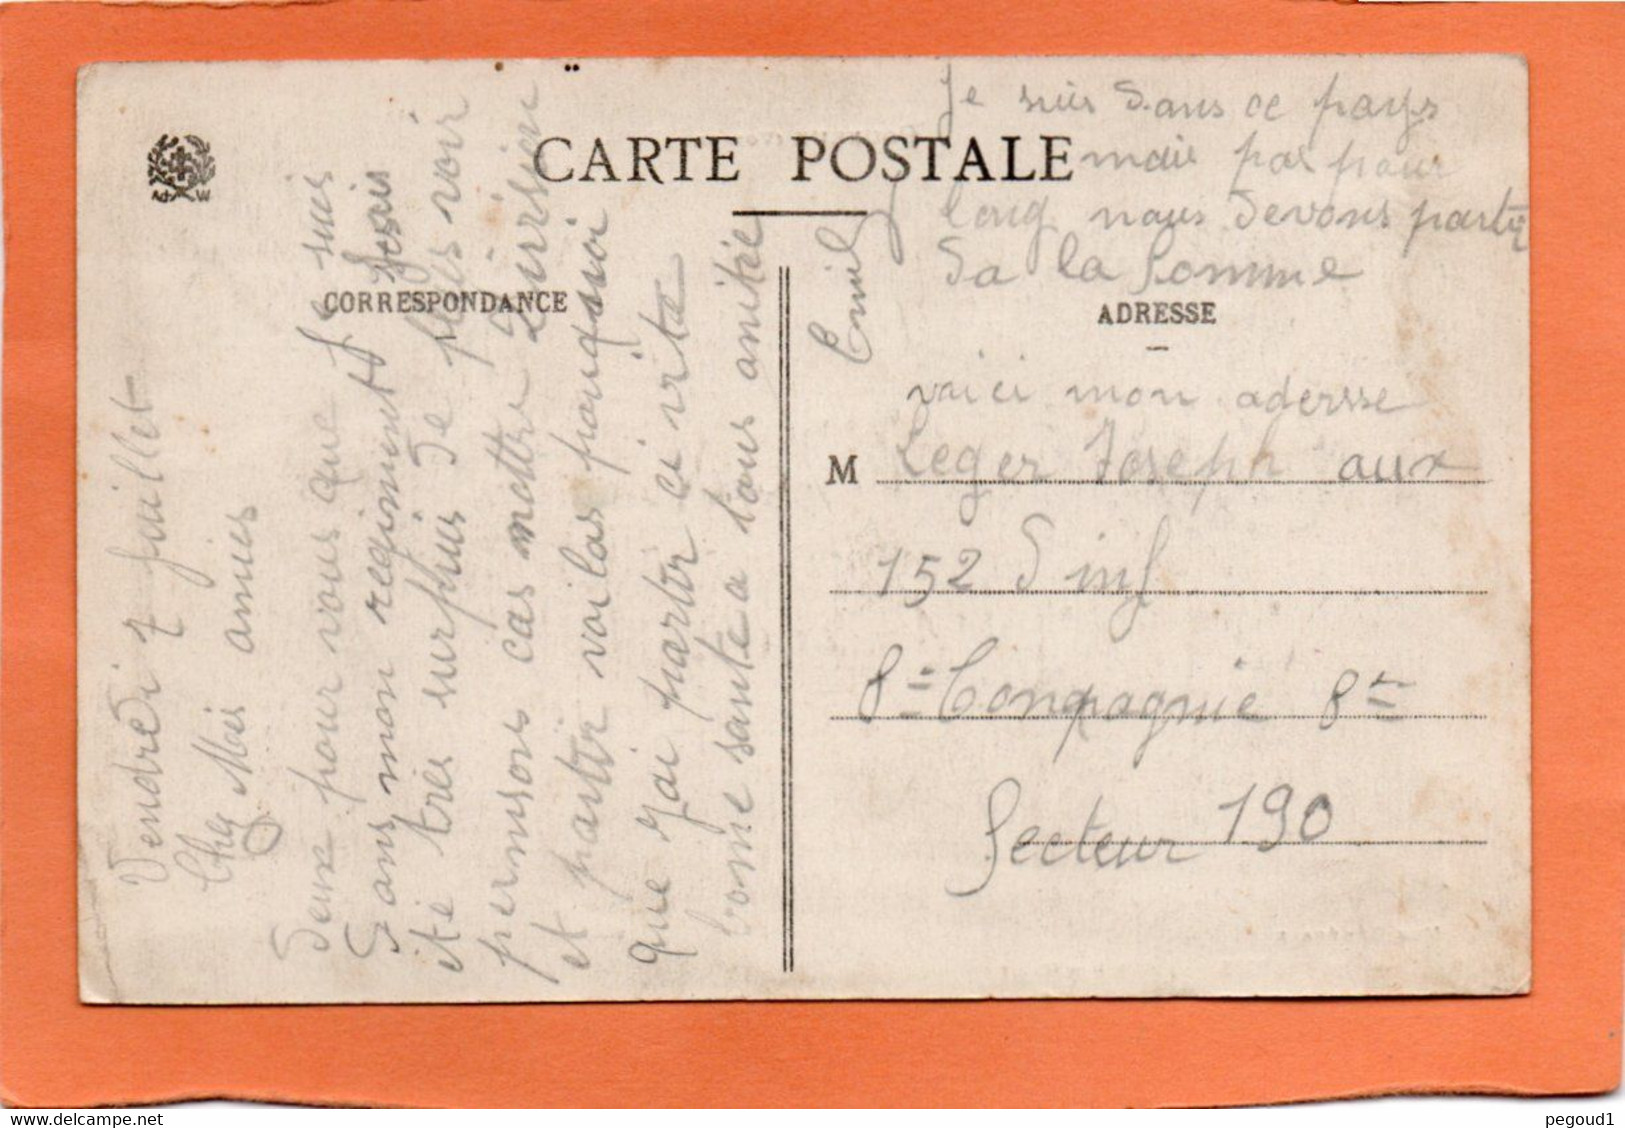 CARTE POSTALE
CORRESPONDANCE
ADRESSE
Vendredi 7 juillet
Cher Mais amies
Deux pour vous que Je suis
Dans mon regimment Jesais
ete tres surpuis De plus voir
permsons cas mettre Dissision
et partir voilas pourquoi
que Jai partir ci vite
bonne sante a tous amitie
Emile
Je suis Dans ce pays
mais pas pour
long nous Devons partir
Da la Somme
voici mon adersse
M Leger Joseph aux
152 D inf
8e Compagnie 8me
Secteur 190
delcampe.net
pegoud1